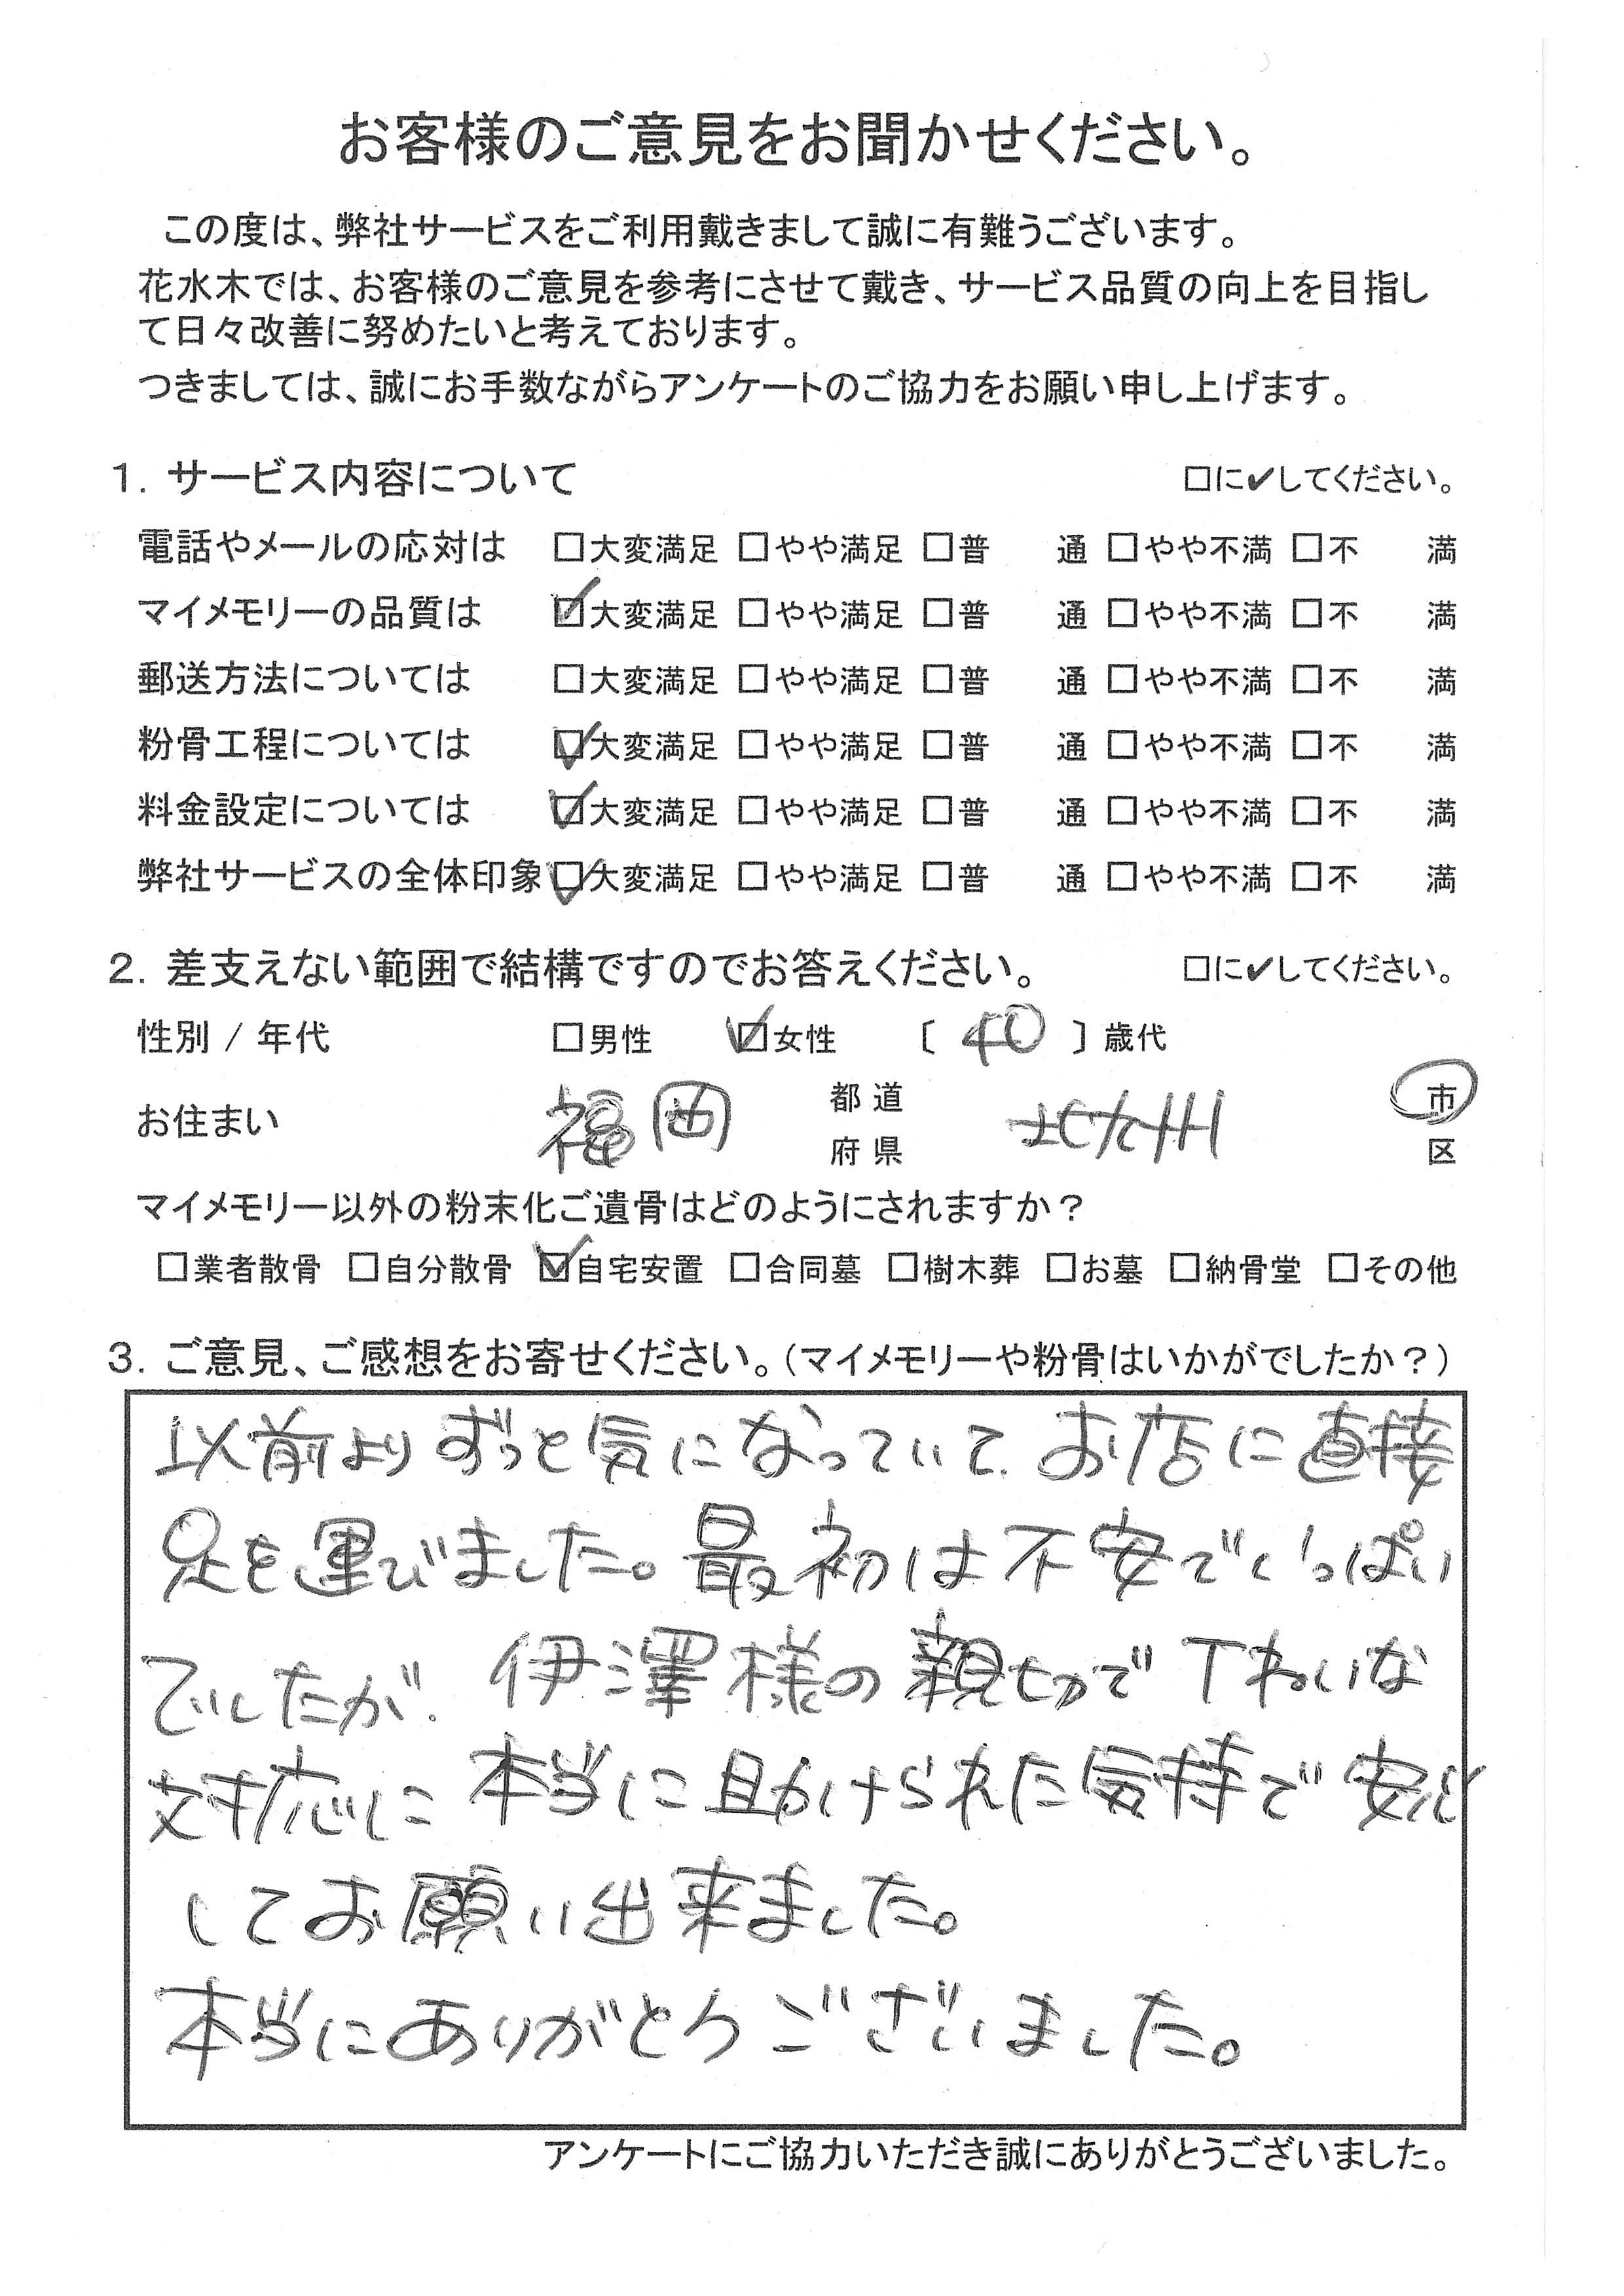 お客様のご意見をお聞かせください。
この度は、弊社サービスをご利用戴きまして誠に有難うございます。
花水木では、お客様のご意見を参考にさせて戴き、サービス品質の向上を目指し
て日々改善に努めたいと考えております。
つきましては、誠にお手数ながらアンケートのご協力をお願い申し上げます。
1. サービス内容について □に✔してください。
電話やメールの応対は □大変満足 □やや満足 □普 通 □やや不満 □不 満
マイメモリーの品質は ☑大変満足 □やや満足 □普 通 □やや不満 □不 満
郵送方法については □大変満足 □やや満足 □普 通 □やや不満 □不 満
粉骨工程については ☑大変満足 □やや満足 □普 通 □やや不満 □不 満
料金設定については ☑大変満足 □やや満足 □普 通 □やや不満 □不 満
弊社サービスの全体印象 ☑大変満足 □やや満足 □普 通 □やや不満 □不 満
2. 差支えない範囲で結構ですのでお答えください。 □に✔してください。
性別 / 年代 □男性 ☑女性 〔 40 〕歳代
お住まい 福岡 都道府県 北九州 市区
マイメモリー以外の粉末化ご遺骨はどのようにされますか？
□業者散骨 □自分散骨 ☑自宅安置 □合同墓 □樹木葬 □お墓 □納骨堂 □その他
3. ご意見、ご感想をお寄せください。（マイメモリーや粉骨はいかがでしたか？）
以前よりずっと気になっていて、お店に直接
足を運びました。最初は不安でいっぱい
でしたが、伊澤様の親切で丁ねいな
対応に本当に助けられた気持で安心
してお願い出来ました。
本当にありがとうございました。
アンケートにご協力いただき誠にありがとうございました。